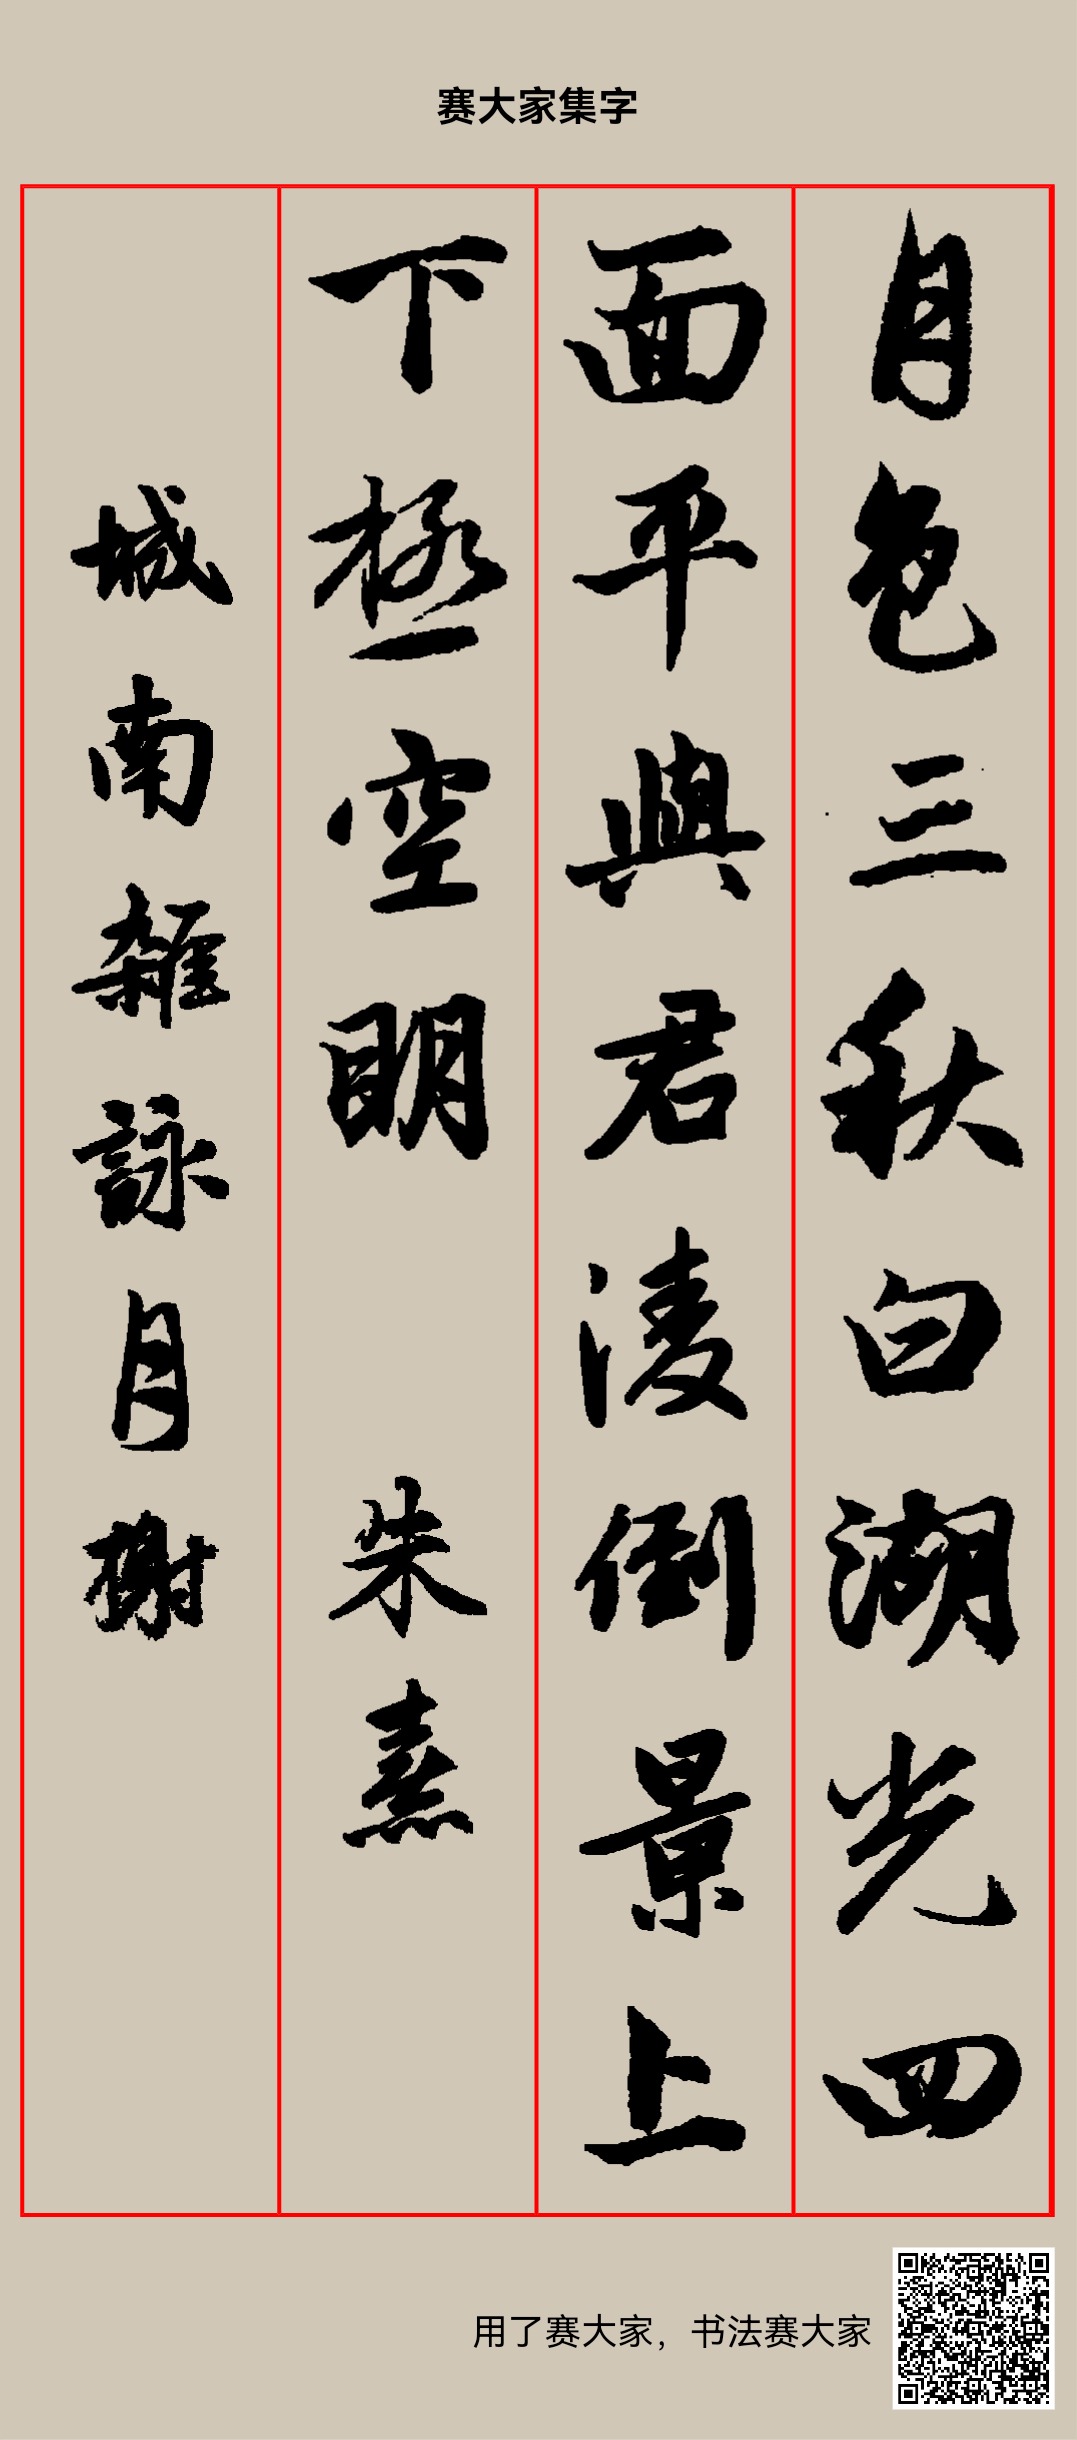 赛大家集字
月色三秋白湖光四
面平與君淩倒景上
下極空明 朱熹
城南雜詠月榭
用了赛大家，书法赛大家